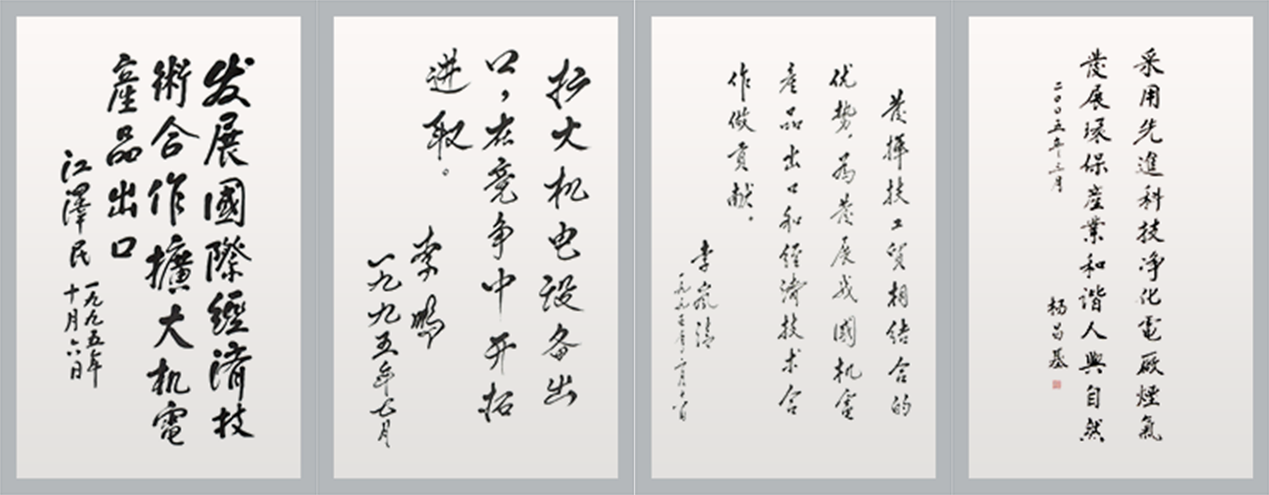 发展國際經濟技
術合作擴大机電
産品出口
江澤民
一九九五年
十月六日
扩大机电设备出
口，在竞争中开拓
进取。
李鹏
一九九五年七月
發揮技工貿相结合的
优势，為發展我國机電
產品出口和經濟技术合
作做贡献。
李岚清
一九九五年
采用先進科技净化電廠煙氣
發展環保産業和谐人與自然
二〇〇五年三月
杨昌基